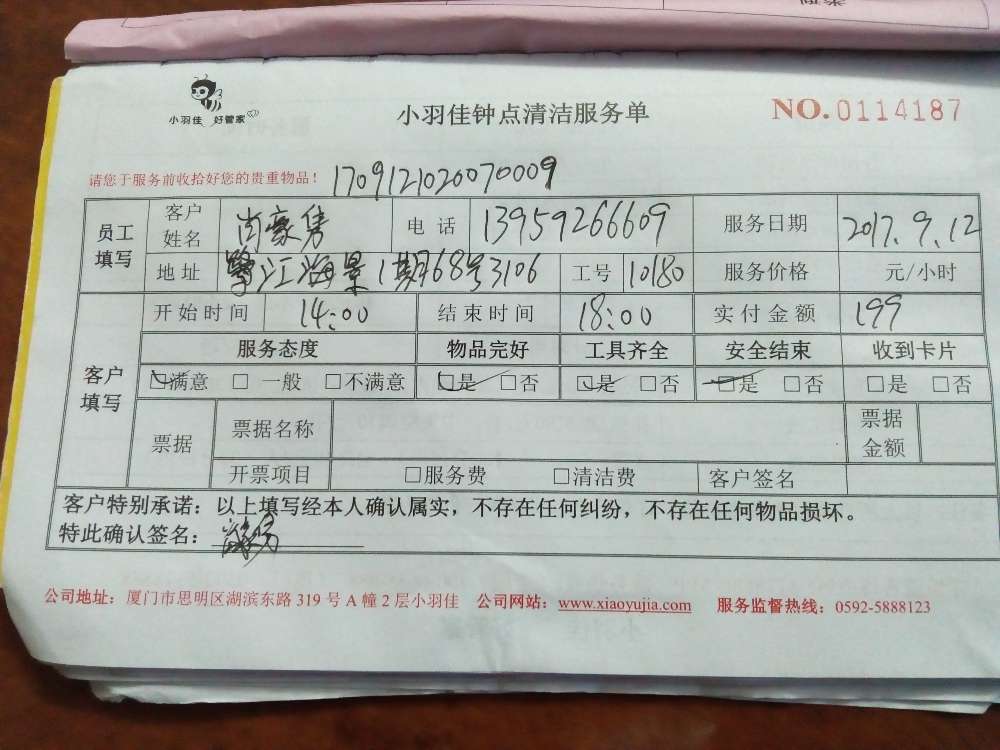 小羽佳 好管家
小羽佳钟点清洁服务单
NO.0114187
请您于服务前收拾好您的贵重物品！ 170912102007009
员工填写 客户姓名 尚豪隽 电话 13959266609 服务日期 2017.9.12
地址 江海景1期68号3106 工号 10180 服务价格 元/小时
客户填写 开始时间 14:00 结束时间 18:00 实付金额 199
服务态度 物品完好 工具齐全 安全结束 收到卡片
☑满意 □ 一般 □不满意 ☑是 □否 ☑是 □否 ☑是 □否 □是 □否
票据 票据名称 票据金额
开票项目 □服务费 □清洁费 客户签名
客户特别承诺：以上填写经本人确认属实，不存在任何纠纷，不存在任何物品损坏。
特此确认签名：
公司地址：厦门市思明区湖滨东路 319 号 A 幢 2 层小羽佳 公司网站：www.xiaoyujia.com 服务监督热线：0592-5888123